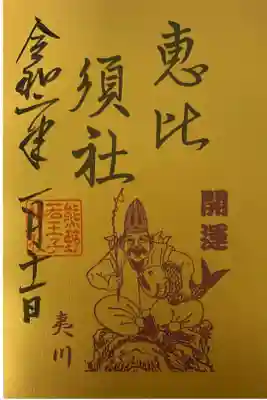 開運
恵比
須社
夷川
熊野
若王子
令和二年一月十一日